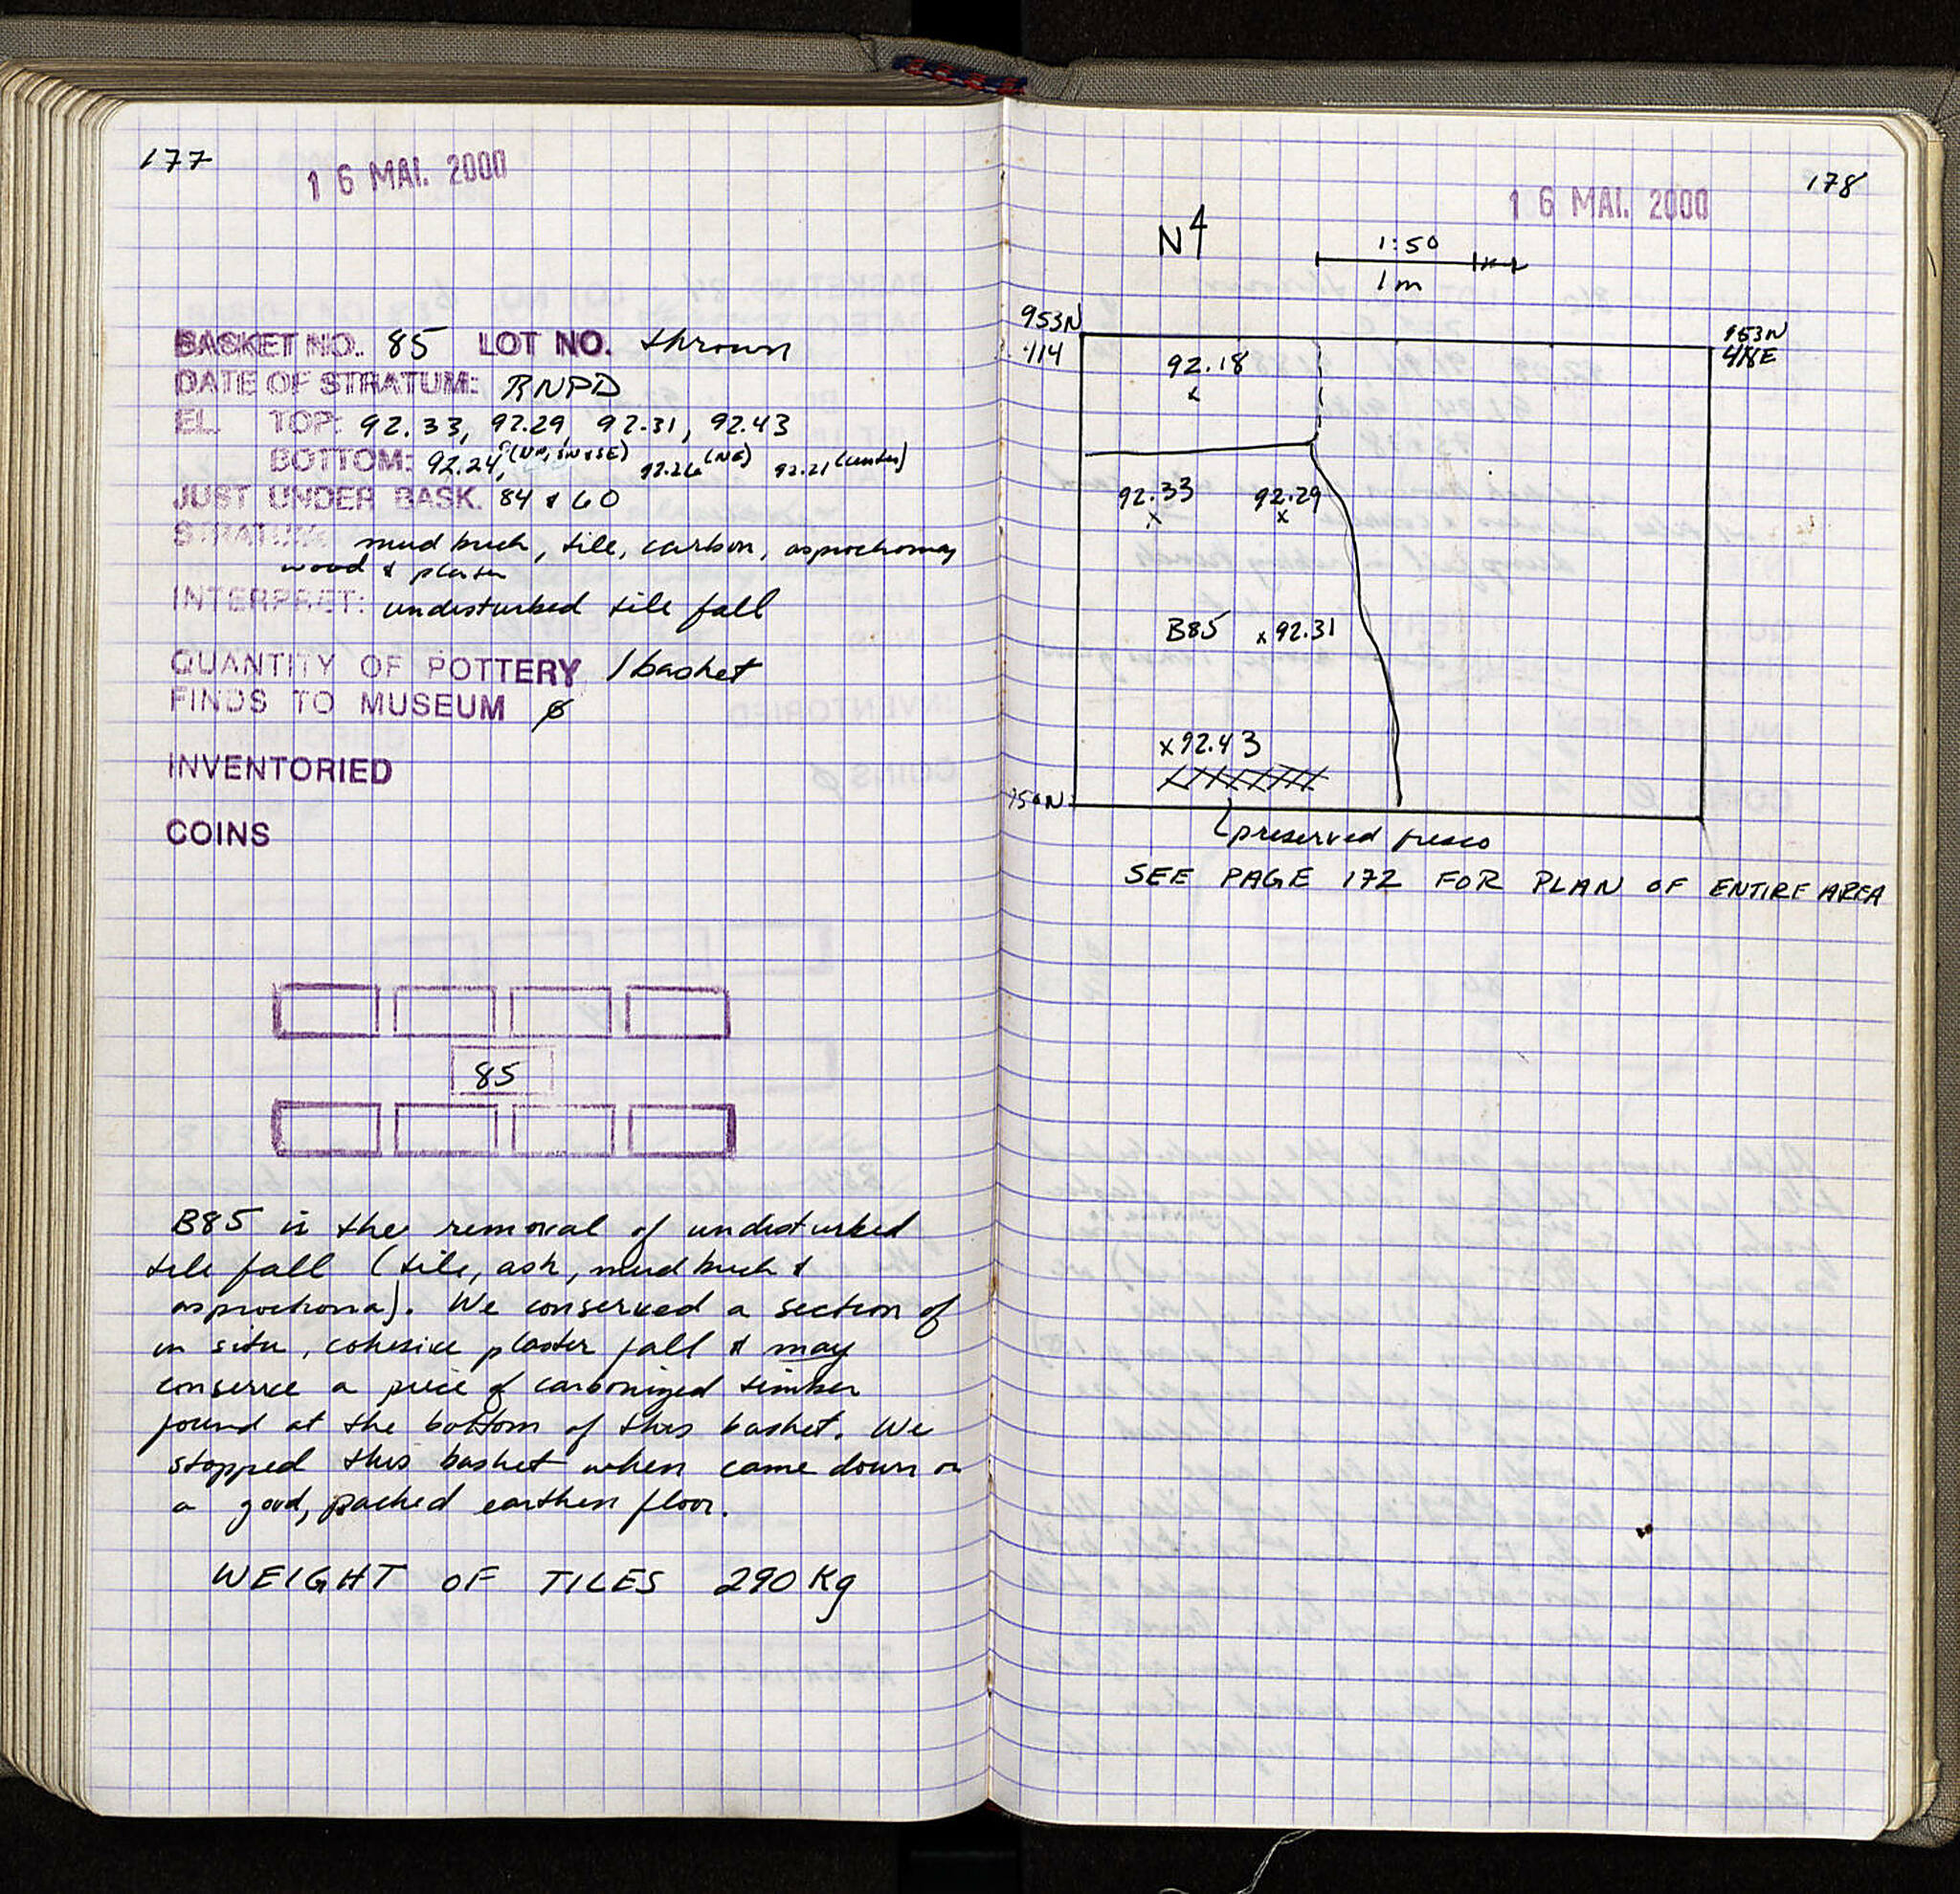 177
16 MAI. 2000
BASKET NO. 85 LOT NO. thrown
DATE OF STRATUM: RNPD
EL. TOP: 92.33, 92.29, 92.31, 92.43
BOTTOM: 92.24, (NW, SW & SE) 92.26 (NE) 92.21 (center)
JUST UNDER BASK. 84 & 60
STRATUM: mudbrick, tile, carbon, asprochoma,
wood & plaster
INTERPRET: undisturbed tile fall
QUANTITY OF POTTERY 1 basket
FINDS TO MUSEUM ø
INVENTORIED
COINS
85
B85 is the removal of undisturbed
tile fall (tile, ash, mudbrick &
asprochoma). We conserved a section of
in situ, cohesive plaster fall & may
conserve a piece of carbonized timber
found at the bottom of this basket. We
stopped this basket when came down on
a good, packed earthen floor.
WEIGHT OF TILES 290 Kg
178
16 MAI. 2000
N
1:50
1m
953N
953N
92.18
92.33 92.29
x x
B85 x 92.31
x 92.43
preserved fresco
SEE PAGE 172 FOR PLAN OF ENTIRE AREA